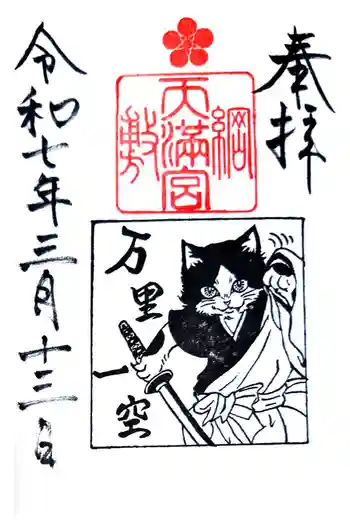 奉拝
綱敷
天満宮
万里
一空
令和七年三月十三日